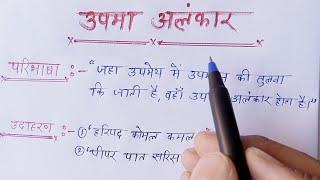 उपमा अलंकार
परिभाषा :- "जहा उपमेय में की तुलना
कि जारी है, वहाँ अलंकार होता है।"
उदाहरण :- ① "हरिपद कोमल कमल
② "पीपर पात सरिस